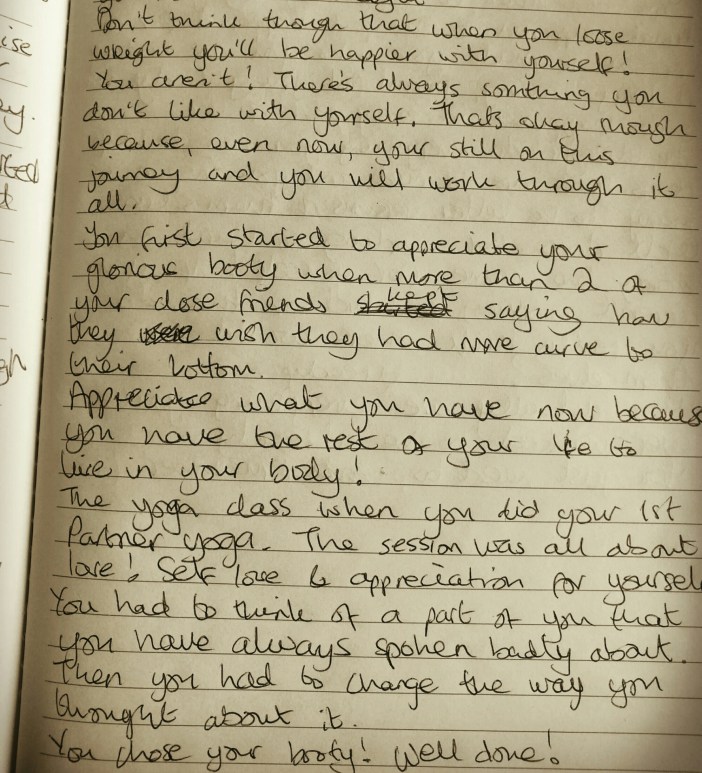 ise
Don't think though that when you loose
weight you'll be happier with yourself!
You aren't! There's always somthing you
ay.
don't like with yourself. Thats okay though
because, even now, your still on this
journey and you will work through it
all.
You first started to appreciate your
glorious booty when more than 2 of
your close friends started kept saying how
they were wish they had more curve to
their bottom.
Appreciate what you have now becaus
you have the rest of your life to
live in your body!
The yoga class when you did your 1st
Partner yoga. The session was all about
love! Self love & appreciation for yoursel
You had to think of a part of you that
you have always spoken badly about.
Then you had to change the way you
thought about it.
You chose your booty! Well done!